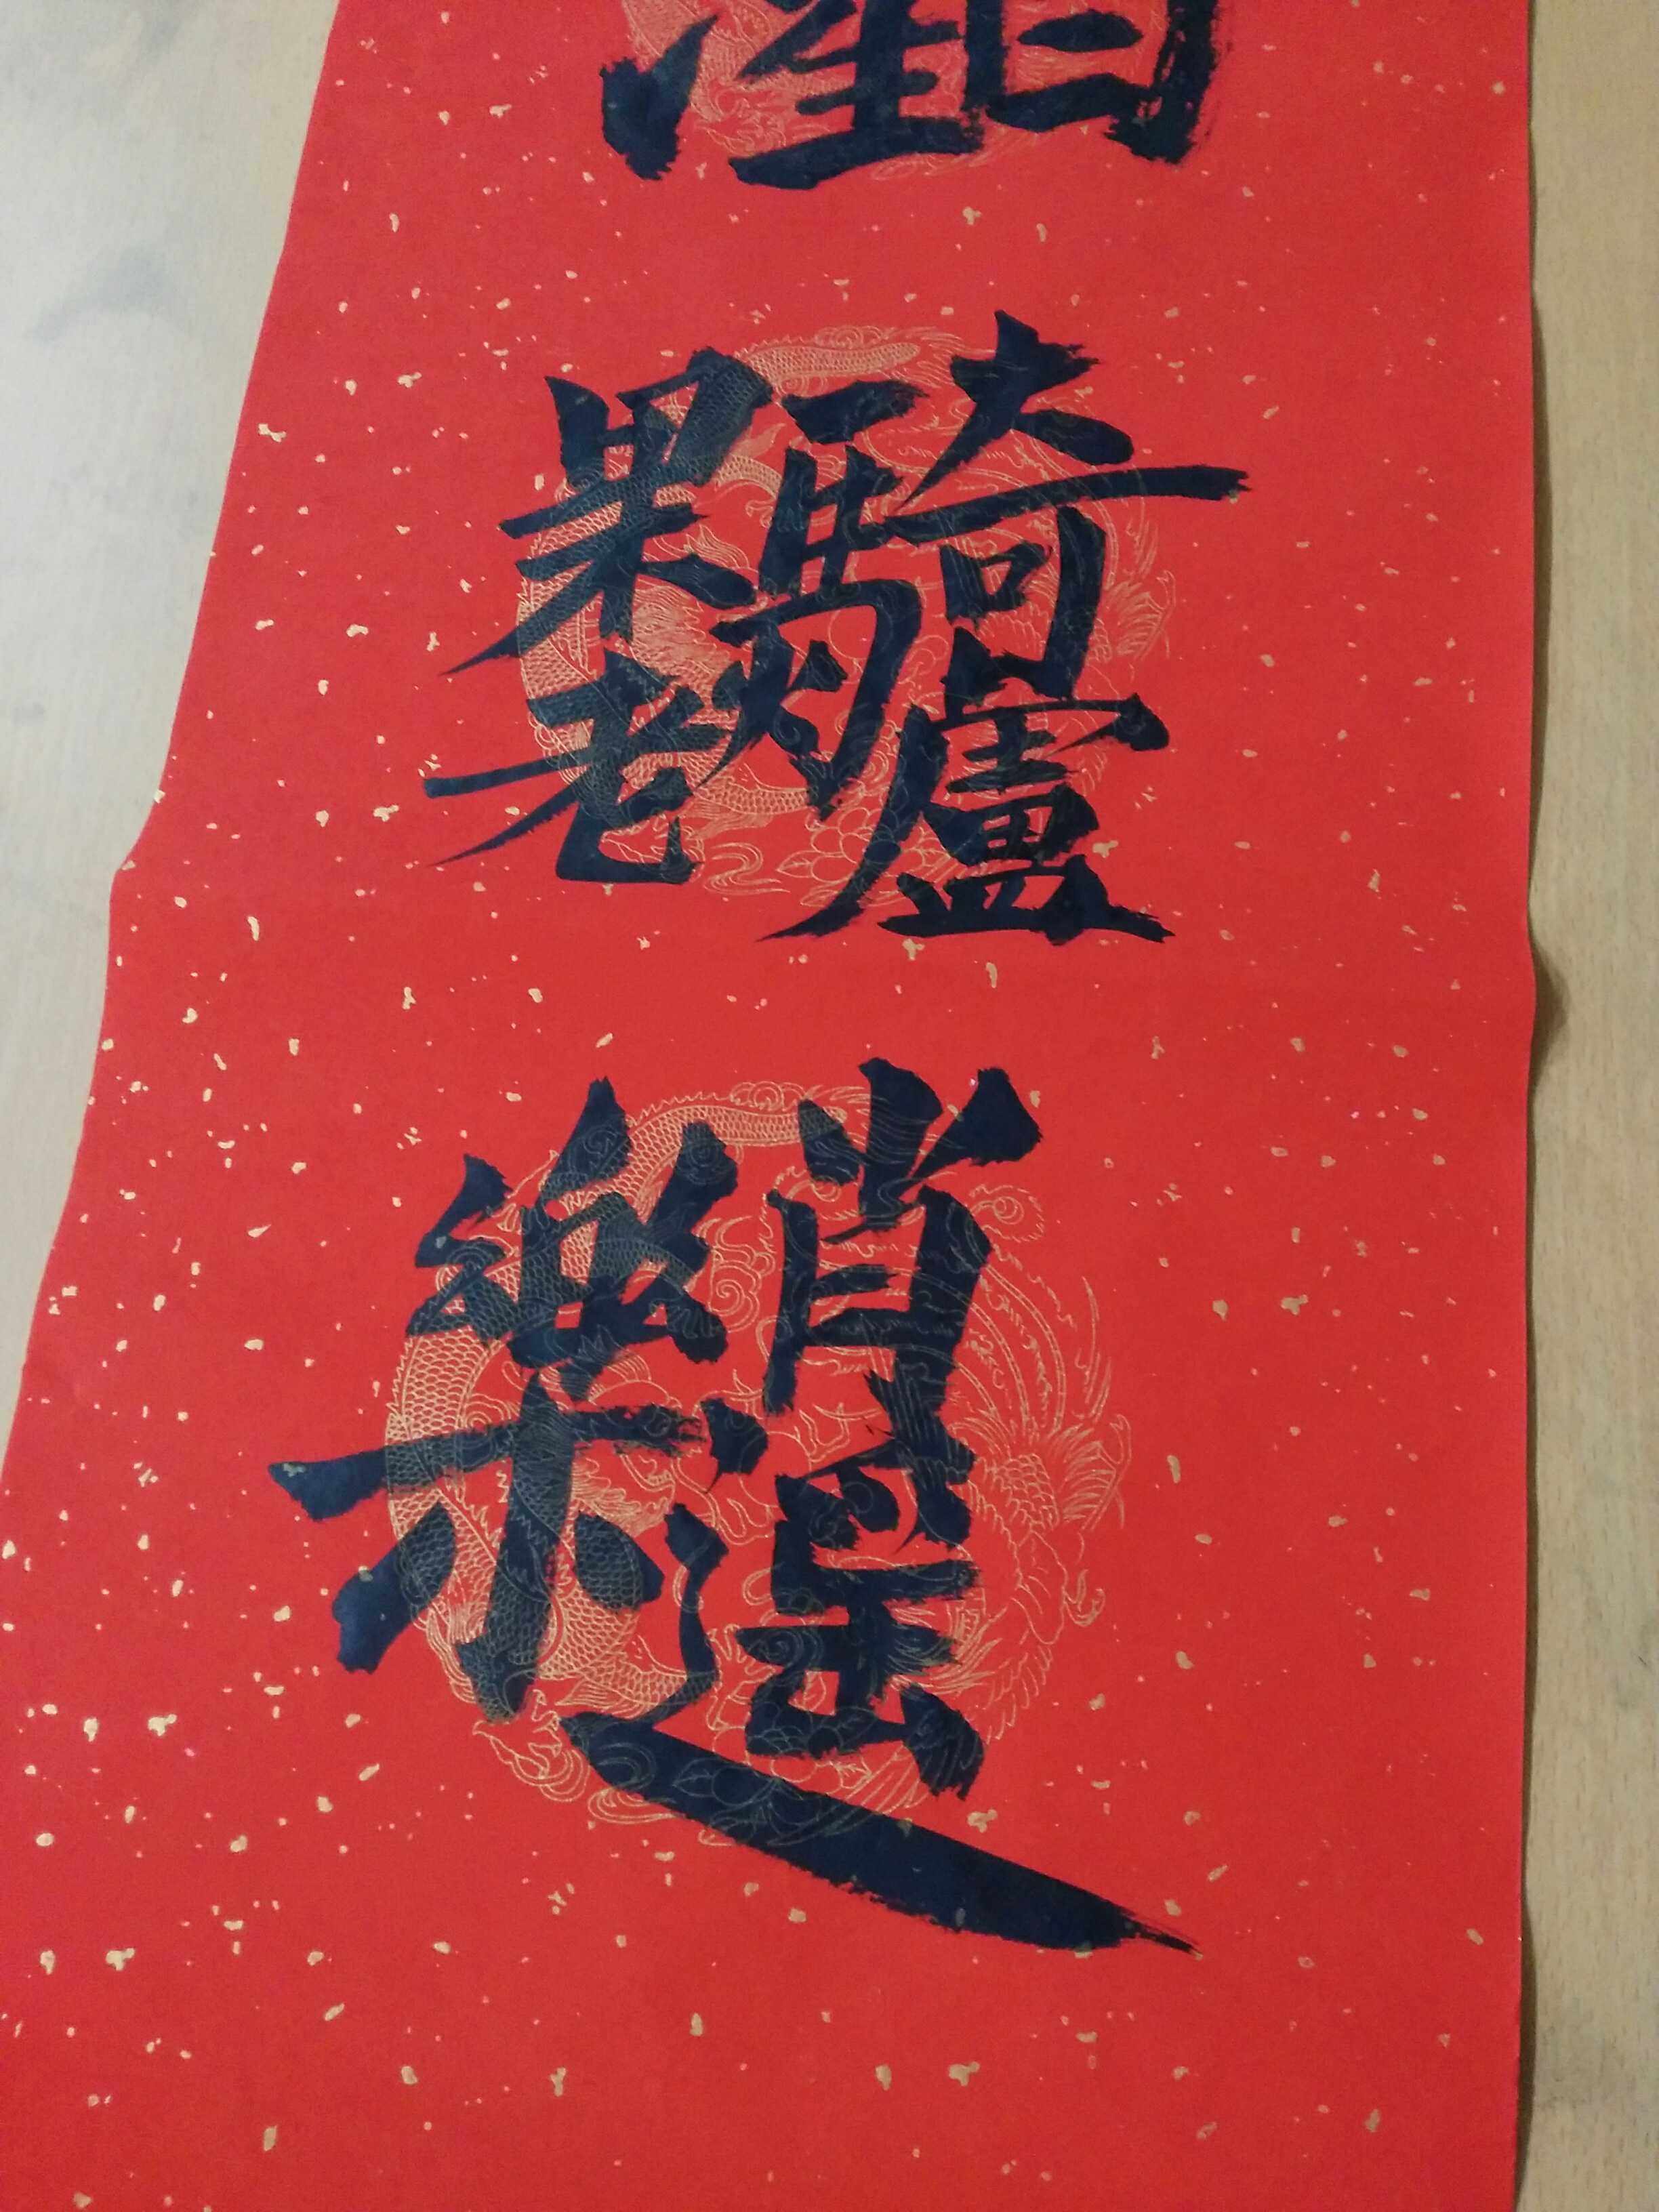 騎驢果老
逍遙樂